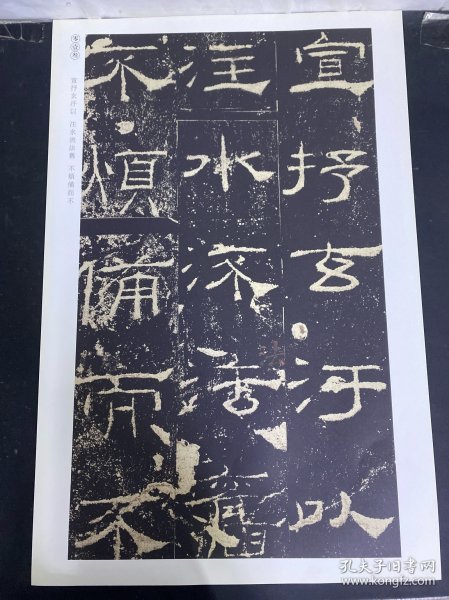 宣抒玄汙以
注水流法舊
不煩備而不
宣抒玄汙以 注水流法舊 不煩備而不
孔夫子旧书网
www.kongfz.com